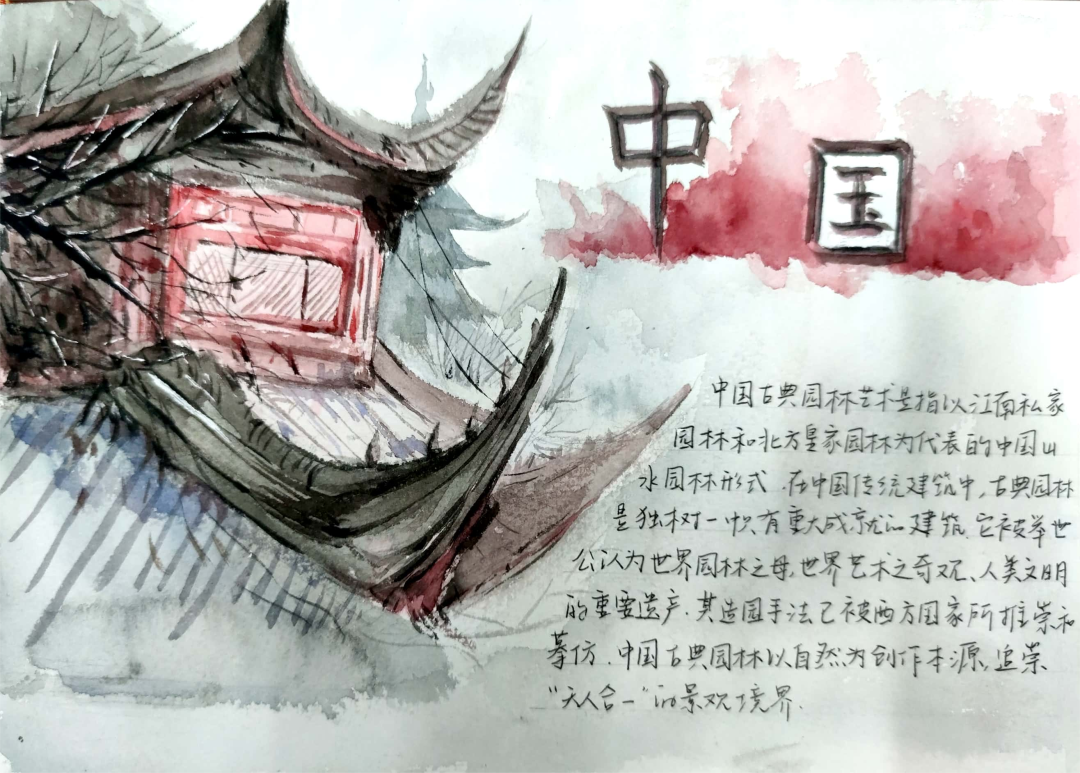 中国
中国古典园林艺术是指以江南私家
园林和北方皇家园林为代表的中国山
水园林形式.在中国传统建筑中,古典园林
是独树一帜有重大成就的建筑.它被举世
公认为世界园林之母,世界艺术之奇观、人类文明
的重要遗产.其造园手法已被西方国家所推崇和
摹仿.中国古典园林以自然为创作本源,追崇
"天人合一"的景观境界.